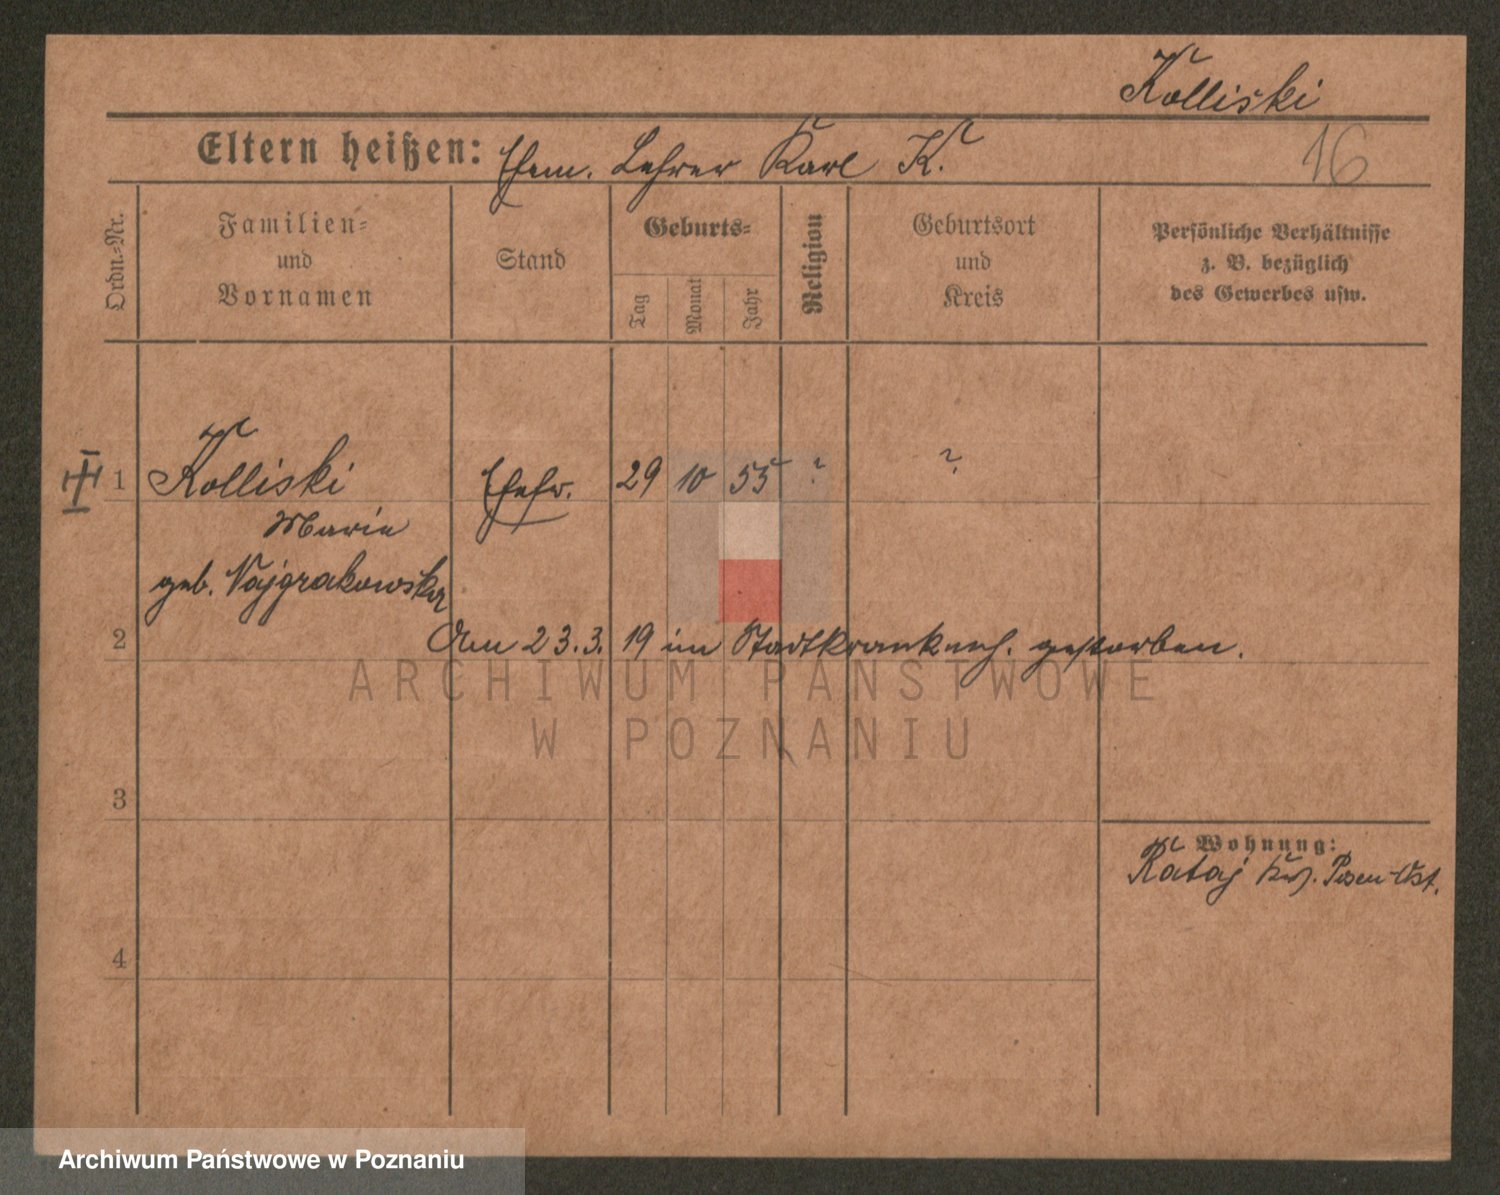 Kolliski
Eltern heißen: Ehem. Lehrer Karl K.
16
Ordn.-Nr.
Familien-
und
Vornamen
Stand
Geburts-
Tag
Monat
Jahr
Religion
Geburtsort
und
Kreis
Persönliche Verhältnisse
z. B. bezüglich
des Gewerbes usw.
1 Kolliski Ehefr. 29 10 55 ? ?
Marie
geb. Najgrakowska
2 Am 23.3. 19 im Stadtkrankenh. gestorben.
ARCHIWUM PAŃSTWOWE
W POZNANIU
3
Wohnung:
Rataj Krs. Posen-Ost.
4
Archiwum Państwowe w Poznaniu